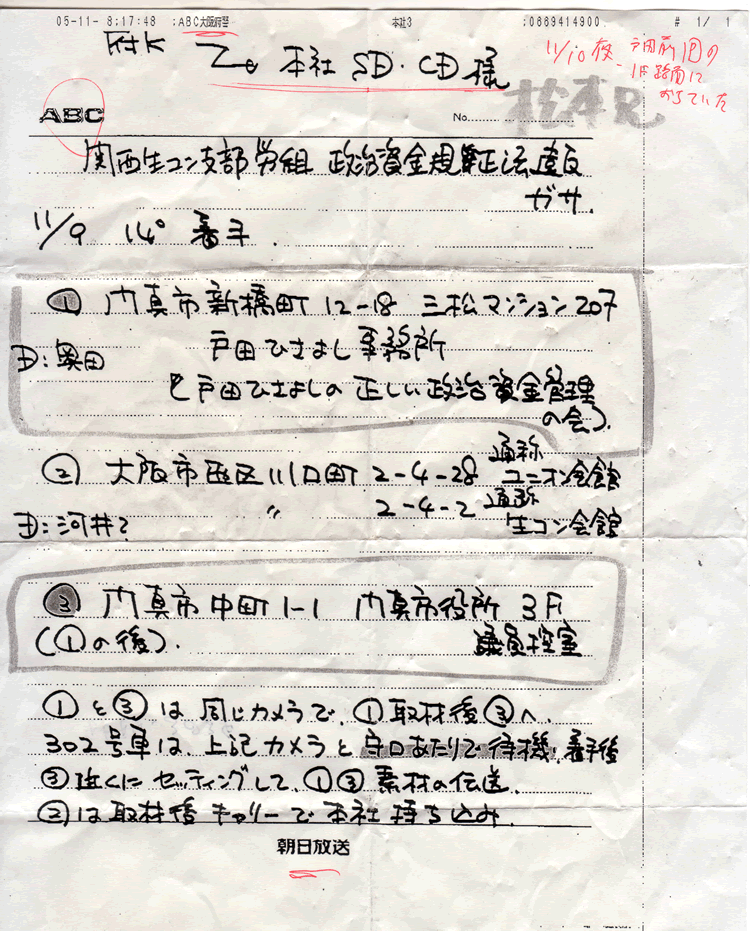 05-11 8:17:48 ;ABC大阪府警 本社3 ;0669414900 # 1/ 1
本社 SD・CD様
11/10 夜
戸田前
路面に
おちていた
ABC
No.
松本兄
関西生コン支部労組 政治資金規正法違反
ガサ.
11/9 14° 着手.
① 門真市新橋町 12-18 三松マンション207
戸田ひさよし事務所
D:奥田
と戸田ひさよしの正しい政治資金管理
の会).
② 大阪市西区川口町 2-4-28 通称ユニオン会館
〃 2-4-2 通称生コン会館
D:河井?
③ 門真市中町1-1 門真市役所 3F
(①の後). 議員控室
①と③は同じカメラで、①取材後③へ.
302号車は、上記カメラと守口あたりで待機、着手後
③近くにセッティングして、①③素材の伝送.
②は取材後キャリーで本社持ち込み.
朝日放送